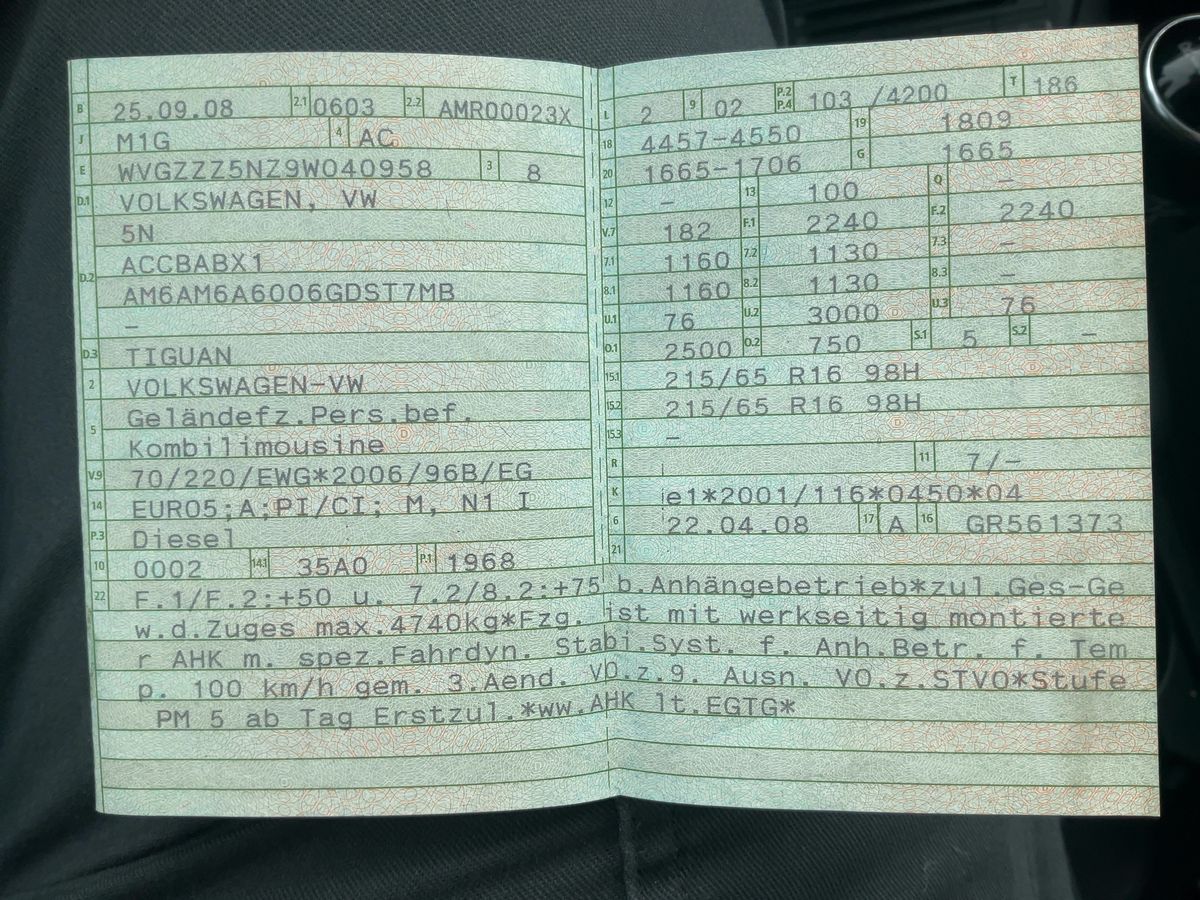 B 25.09.08 2.1 0603 2.2 AMR00023X
J M1G 4 AC
E WVGZZZ5NZ9W040958 3 8
D.1 VOLKSWAGEN, VW
5N
D.2 ACCBABX1
AM6AM6A6006GDST7MB
–
D.3 TIGUAN
2 VOLKSWAGEN-VW
5 Geländefz.Pers.bef.
Kombilimousine
V.9 70/220/EWG*2006/96B/EG
14 EURO5;A;PI/CI; M, N1 I
P.3 Diesel
10 0002 14.1 35A0 P.1 1968
L 2 9 02 P.2 P.4 103 /4200 T 186
18 4457-4550 19 1809
20 1665-1706 G 1665
12 – 13 100 Q –
V.7 182 F.1 2240 F.2 2240
7.1 1160 7.2 1130 7.3 –
8.1 1160 8.2 1130 8.3 –
U.1 76 U.2 3000 U.3 76
O.1 2500 O.2 750 S.1 5 S.2 –
15.1 215/65 R16 98H
15.2 215/65 R16 98H
15.3 –
R 11 7/-
K e1*2001/116*0450*04
6 22.04.08 17 A 16 GR561373
21
22 F.1/F.2:+50 u. 7.2/8.2:+75 b.Anhängebetrieb*zul.Ges-Ge
w.d.Zuges max.4740kg*Fzg. ist mit werkseitig montierte
r AHK m. spez.Fahrdyn. Stabi.Syst. f. Anh.Betr. f. Tem
p. 100 km/h gem. 3.Aend. VO.z.9. Ausn. VO.z.STVO*Stufe
PM 5 ab Tag Erstzul.*ww.AHK lt.EGTG*